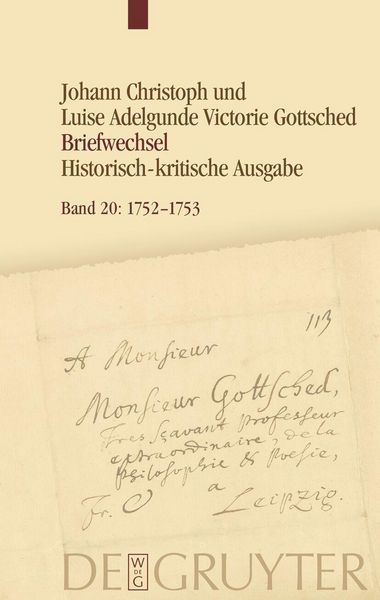 W
DE
G
Johann Christoph und
Luise Adelgunde Victorie Gottsched
Briefwechsel
Historisch-kritische Ausgabe
Band 20: 1752–1753
113
A Monsieur
Monsieur Gottsched,
Tres Sçavant Professeur
extraordinaire, de la
Philosophie & Poesie,
a
Fr. O Leipzig.
DE GRUYTER
W
DE
G